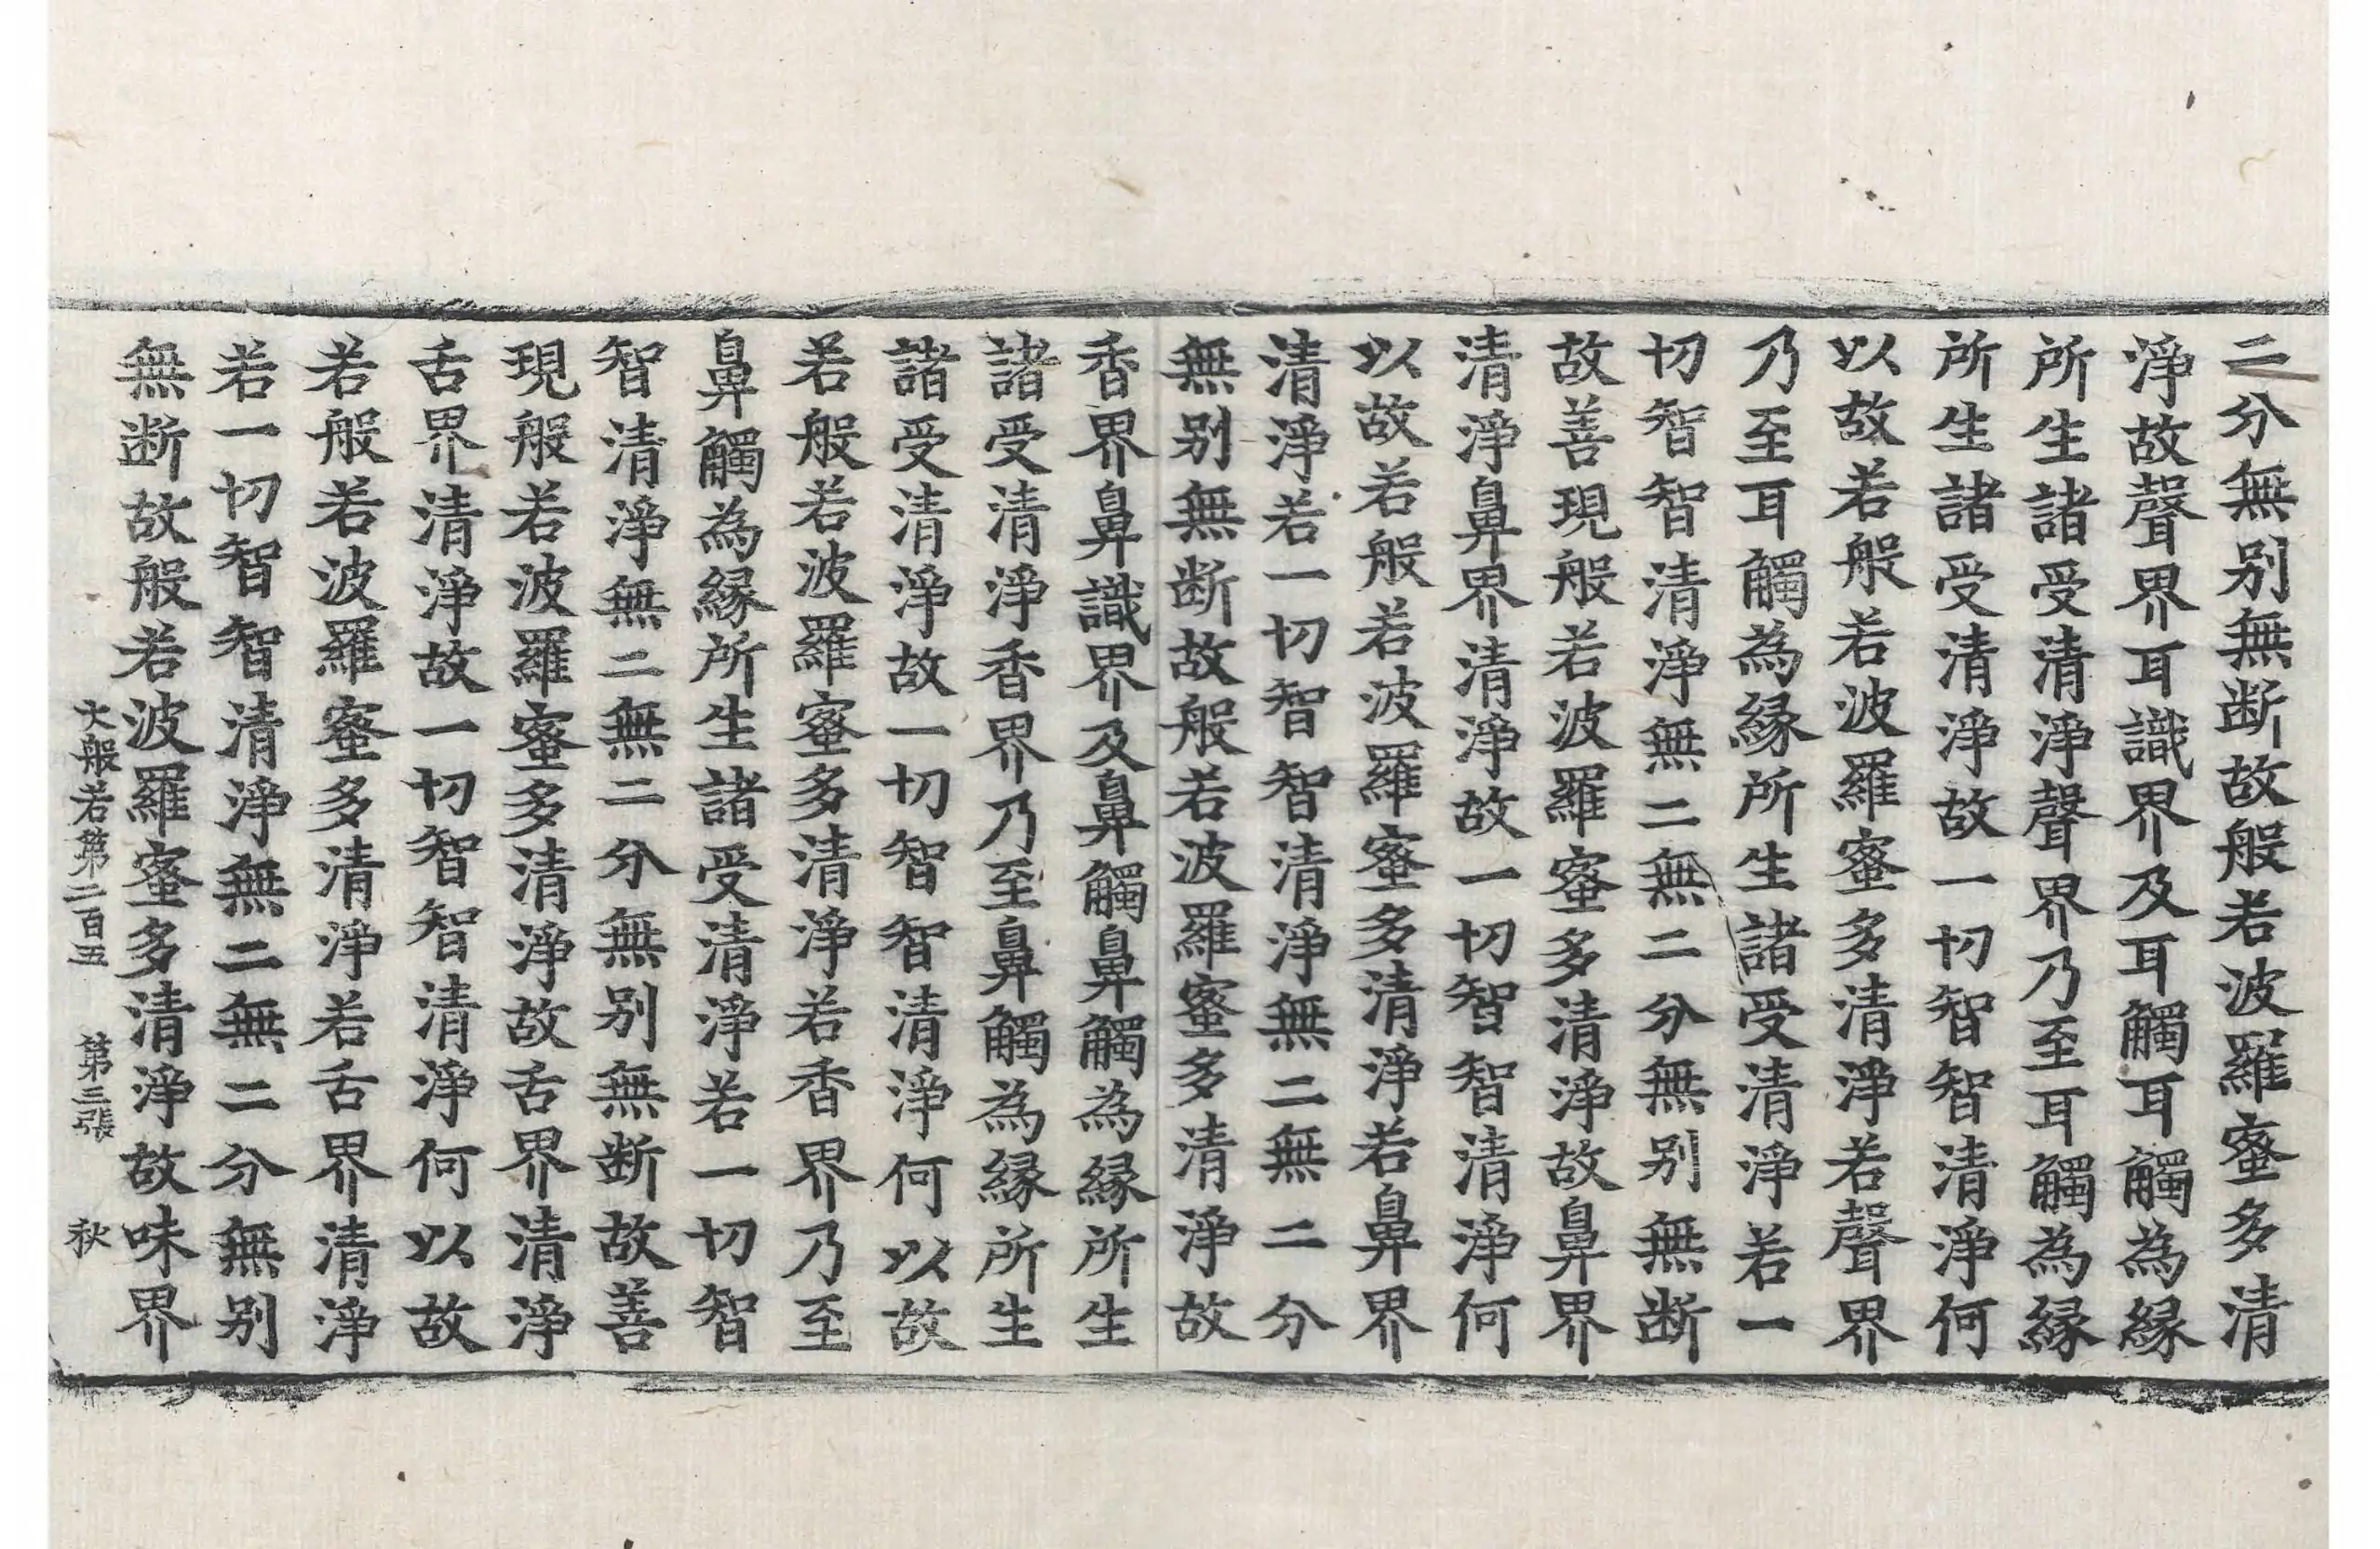 二分無别無断故般若波羅蜜多清
淨故聲界耳識界及耳觸耳觸為縁
所生諸受清淨聲界乃至耳觸為縁
所生諸受清淨故一切智智清淨何
以故若般若波羅蜜多清淨若聲界
乃至耳觸為縁所生諸受清淨若一
切智智清淨無二無二分無别無断
故善現般若波羅蜜多清淨故鼻界
清淨鼻界清淨故一切智智清淨何
以故若般若波羅蜜多清淨若鼻界
清淨若一切智智清淨無二無二分
無别無断故般若波羅蜜多清淨故
香界鼻識界及鼻觸鼻觸為縁所生
諸受清淨香界乃至鼻觸為縁所生
諸受清淨故一切智智清淨何以故
若般若波羅蜜多清淨若香界乃至
鼻觸為縁所生諸受清淨若一切智
智清淨無二無二分無别無断故善
現般若波羅蜜多清淨故舌界清淨
舌界清淨故一切智智清淨何以故
若般若波羅蜜多清淨若舌界清淨
若一切智智清淨無二無二分無别
無断故般若波羅蜜多清淨故味界
大般若第二百五 第三張 秋